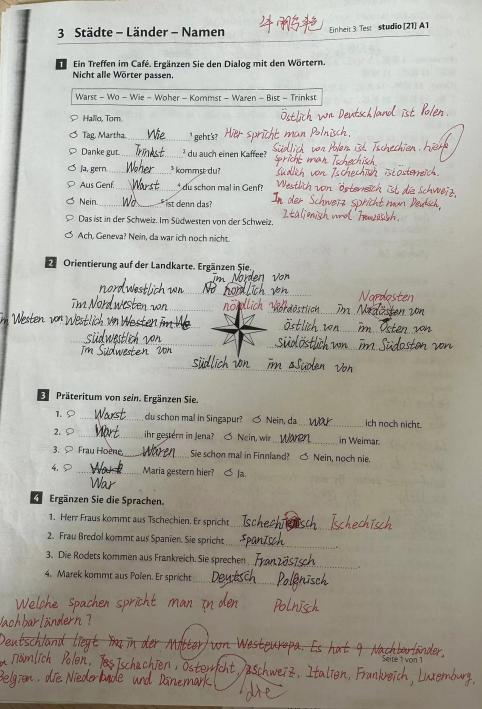 Einheit 3 Test studio [21] A1
3 Städte – Länder – Namen
1 Ein Treffen im Café. Ergänzen Sie den Dialog mit den Wörtern.
Nicht alle Wörter passen.
Warst – Wo – Wie – Woher – Kommst – Waren – Bist – Trinkst
Östlich von Deutschland ist Polen.
Hallo, Tom.
Tag, Martha. Wie 1 geht's? Hier spricht man Polnisch.
Danke gut. Trinkst 2 du auch einen Kaffee? Südlich von Polen ist Tschechien. hier
spricht man Tschechisch
Ja, gern. Woher 3 kommst du? südlich von Tschechisch ist Österreich.
Aus Genf. Warst 4 du schon mal in Genf? Westlich von Österreich ist die Schweiz.
Nein. Wo 5 ist denn das? In der Schweiz spricht man Deutsch,
Italienisch und Französisch.
Das ist in der Schweiz. Im Südwesten von der Schweiz.
Ach, Geneva? Nein, da war ich noch nicht.
2 Orientierung auf der Landkarte. Ergänzen Sie.
im Norden von
nordwestlich von nördlich von
Nordosten
im Nordwesten von nördlich von nordöstlich im Nordosten von
im Westen von Westlich von Westen im We östlich von im Osten von
südwestlich von südöstlich von im Südosten von
im Südwesten von
südlich von im Süden von
3 Präteritum von sein. Ergänzen Sie.
1. Warst du schon mal in Singapur? Nein, da war ich noch nicht.
2. Wart ihr gestern in Jena? Nein, wir waren in Weimar.
3. Frau Hoene, Waren Sie schon mal in Finnland? Nein, noch nie.
4. Maria gestern hier? Ja.
War
4 Ergänzen Sie die Sprachen.
1. Herr Fraus kommt aus Tschechien. Er spricht Tschechisch
2. Frau Bredol kommt aus Spanien. Sie spricht Spanisch
3. Die Rodets kommen aus Frankreich. Sie sprechen Französisch
4. Marek kommt aus Polen. Er spricht Deutsch Polnisch
Welche Spachen spricht man in den Polnisch
Nachbarländern?
Deutschland liegt im in der Mitter von Westeuropa. Es hat 9 Nachbarländer,
Seite 1 von 1
nämlich Polen, Tschachien, Österricht, Schweiz, Italien, Frankreich, Luxemburg,
Belgien, die Niederlande und Dänemark die